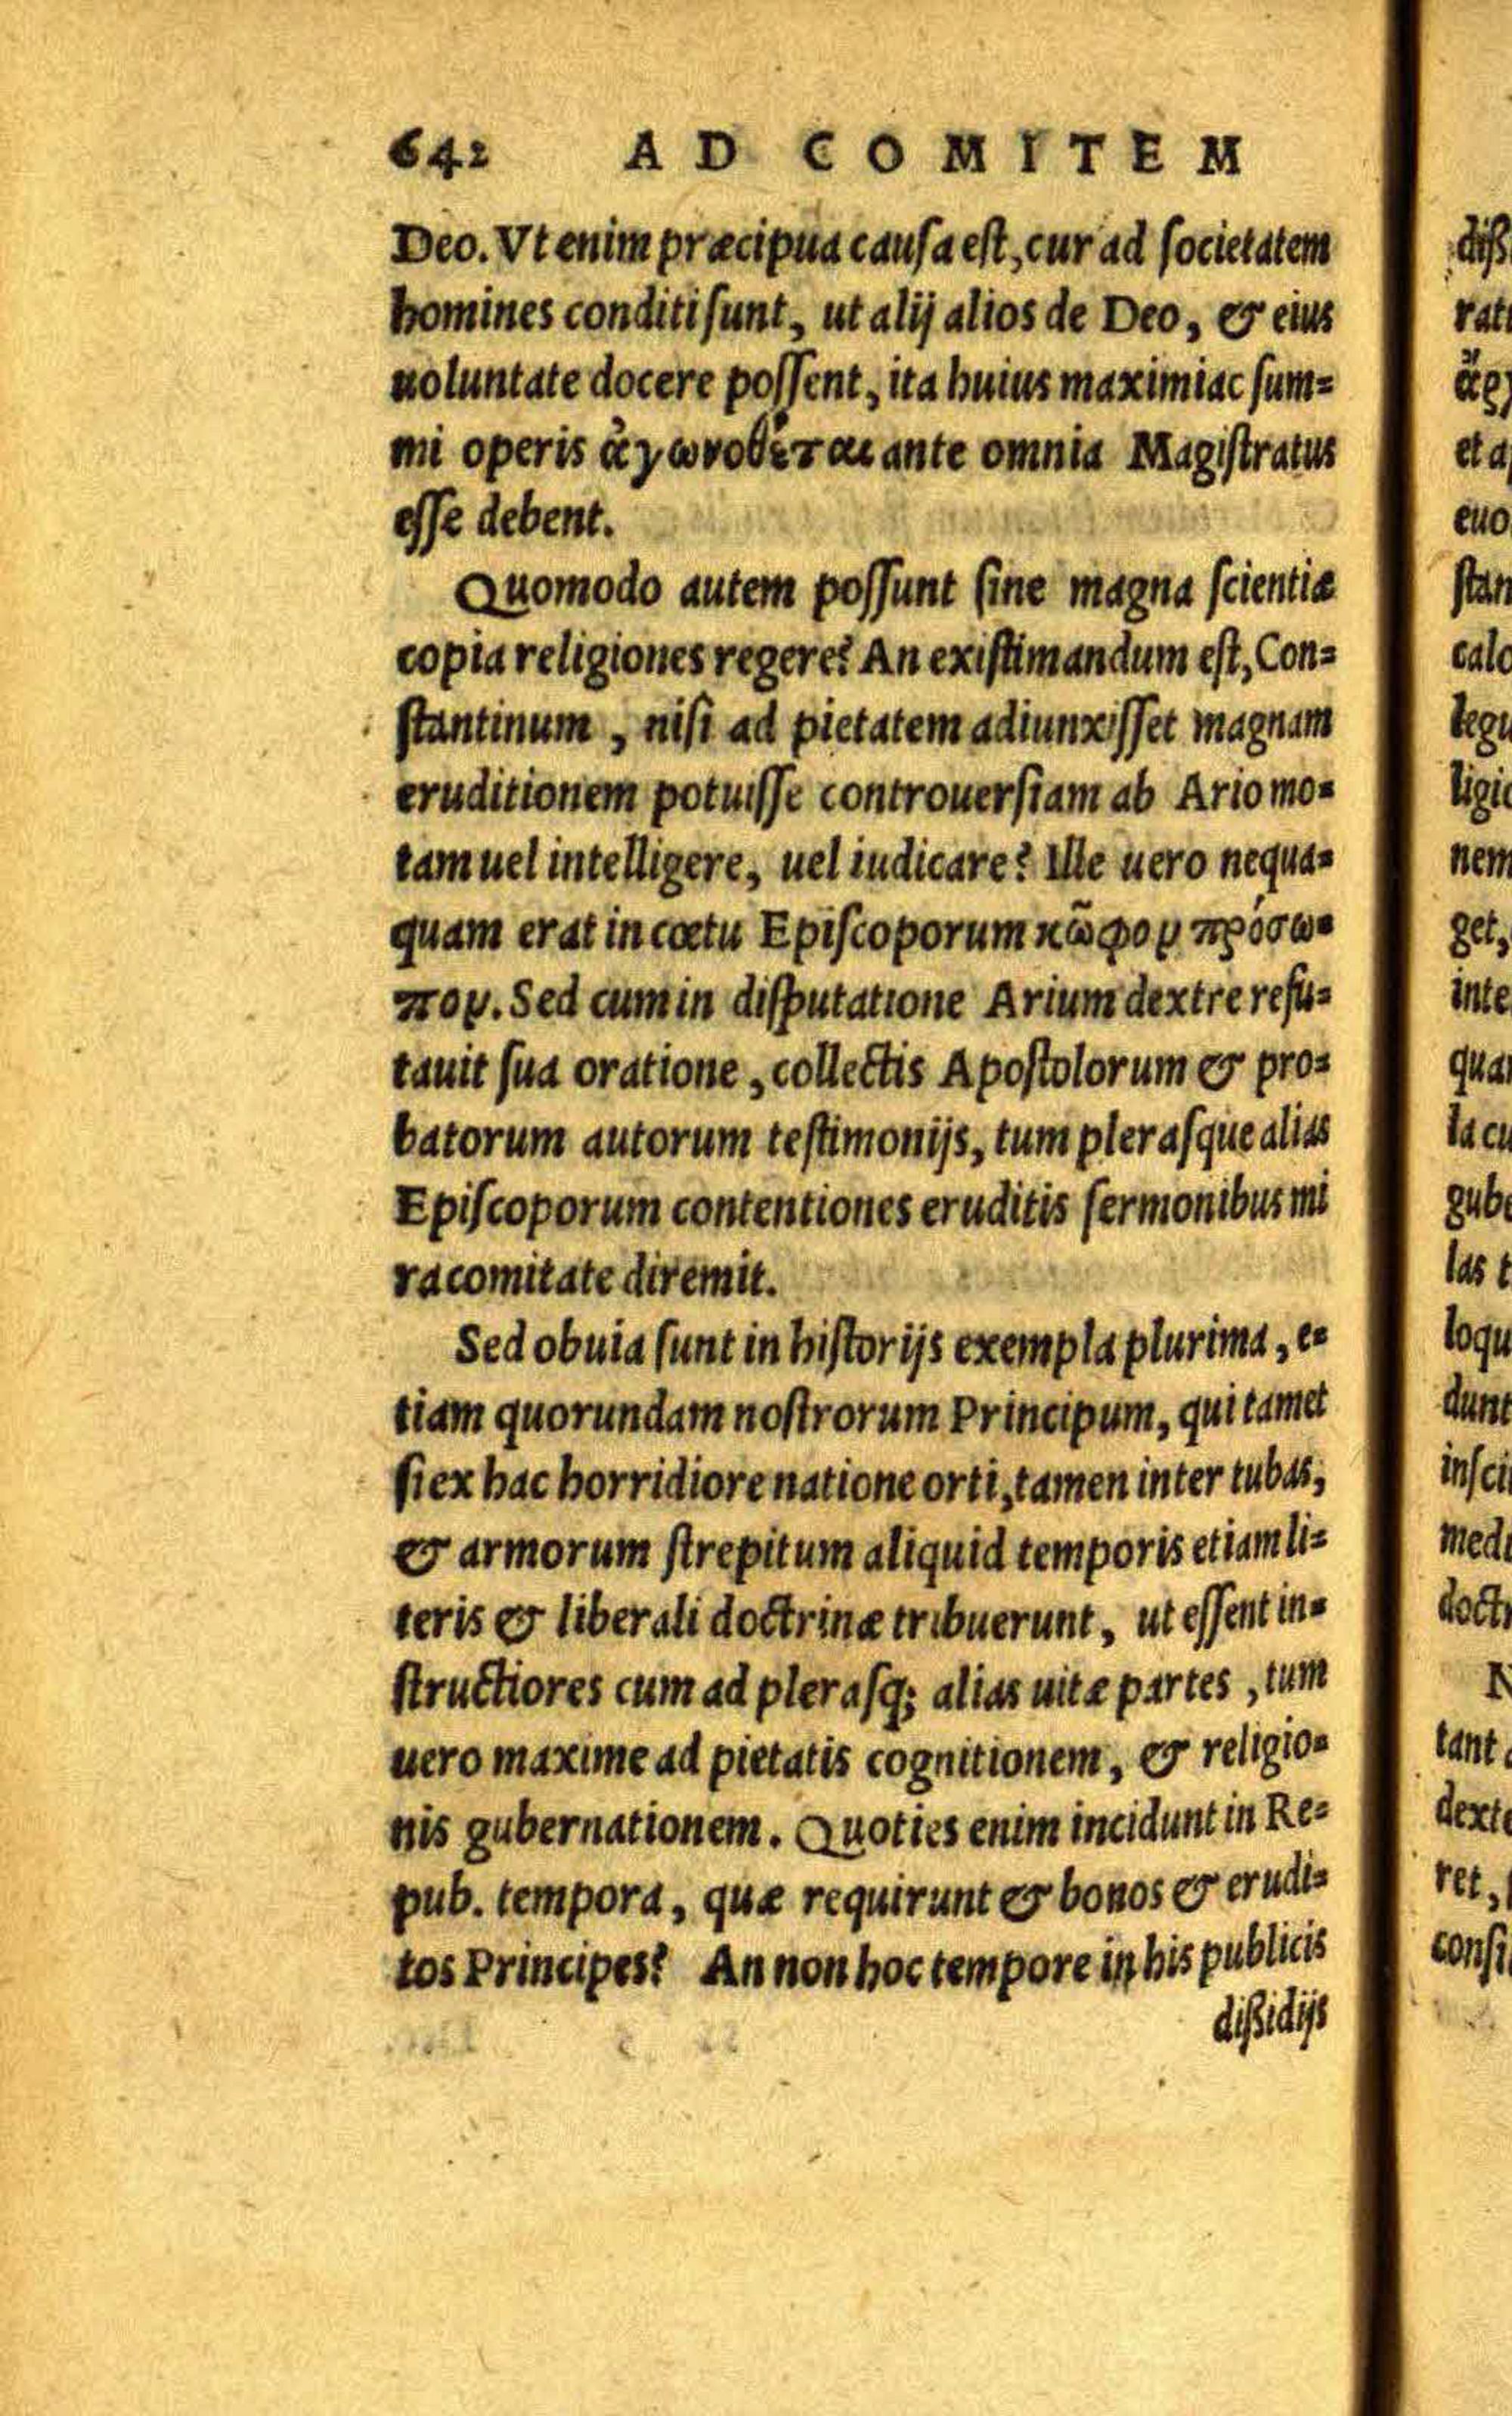 642 AD COMITEM
Deo. Vt enim præcipua causa est, cur ad societatem
homines conditi sunt, ut alij alios de Deo, & eius
uoluntate docere possent, ita huius maximi ac sum=
mi operis ἀγωνοθέται ante omnia Magistratus
esse debent.
Quomodo autem possunt sine magna scientiæ
copia religiones regere? An existimandum est, Con=
stantinum, nisi ad pietatem adiunxisset magnam
eruditionem potuisse controuersiam ab Ario mo=
tam uel intelligere, uel iudicare? Ille uero nequa=
quam erat in cœtu Episcoporum κῶφον πρόσω=
πον. Sed cum in disputatione Arium dextre refu=
tauit sua oratione, collectis Apostolorum & pro=
batorum autorum testimonijs, tum plerasque alias
Episcoporum contentiones eruditis sermonibus mi
ra comitate diremit.
Sed obuia sunt in historijs exempla plurima, e=
tiam quorundam nostrorum Principum, qui tamet
si ex hac horridiore natione orti, tamen inter tubas,
& armorum strepitum aliquid temporis etiam li=
teris & liberali doctrinæ tribuerunt, ut essent in=
structiores cum ad plerasq; alias uitæ partes, tum
uero maxime ad pietatis cognitionem, & religio=
nis gubernationem. Quoties enim incidunt in Re=
pub. tempora, quæ requirunt & bonos & erudi=
tos Principes? An non hoc tempore in his publicis
dißidijs